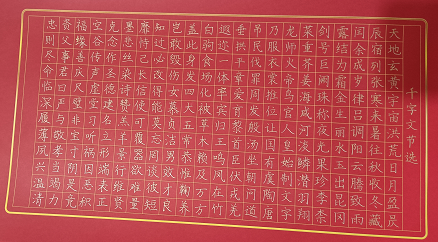 千字文节选
天地玄黄宇宙洪荒日月盈昃
辰宿列张寒来暑往秋收冬藏
闰余成岁律吕调阳云腾致雨
露结为霜金生丽水玉出昆冈
剑号巨阙珠称夜光果珍李柰
菜重芥姜海咸河淡鳞潜羽翔
龙师火帝鸟官人皇始制文字
乃服衣裳推位让国有虞陶唐
吊民伐罪周发殷汤坐朝问道
垂拱平章爱育黎首臣伏戎羌
遐迩一体率宾归王鸣凤在竹
白驹食场化被草木赖及万方
盖此身发四大五常恭惟鞠养
岂敢毁伤女慕贞洁男效才良
知过必改得能莫忘罔谈彼短
靡恃己长信使可覆器欲难量
墨悲丝染诗赞羔羊景行维贤
克念作圣德建名立形端表正
空谷传声虚堂习听祸因恶积
福缘善庆尺璧非宝寸阴是竞
资父事君曰严与敬孝当竭力
忠则尽命临深履薄夙兴温清